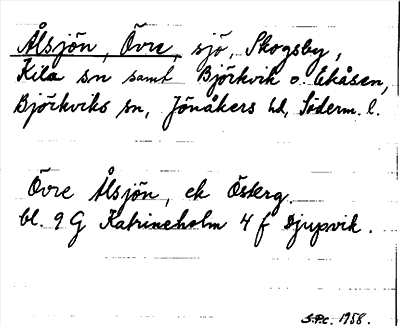 Ålsjön, Övre, sjö, Skogsby,
Kila sn samt Björkvik o. Ekåsen,
Björkviks sn, Jönåkers hd, Söderm. l.
Övre Ålsjön, ek Österg.
bl. 9 G Katrineholm 4 f Djupvik.
S.P.c. 1958.